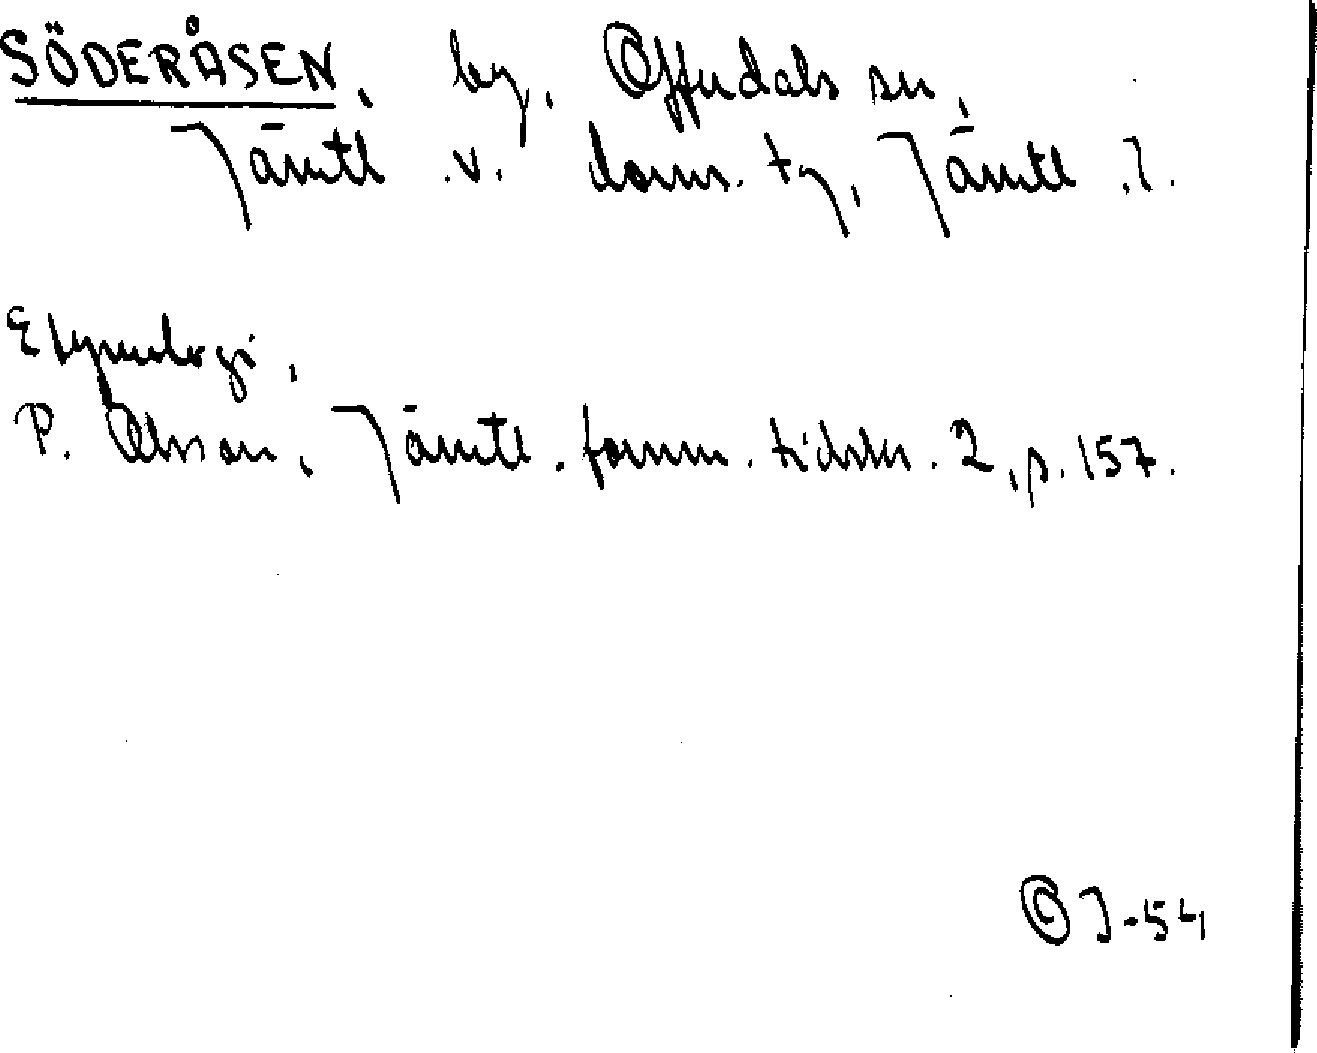 SÖDERÅSEN, by, Offerdals sn,
Jämtl. v. doms. tg, Jämtl. l.
Etymologi,
P. Olsson, Jämtl. fornm. tidskr. 2, p. 157.
-54